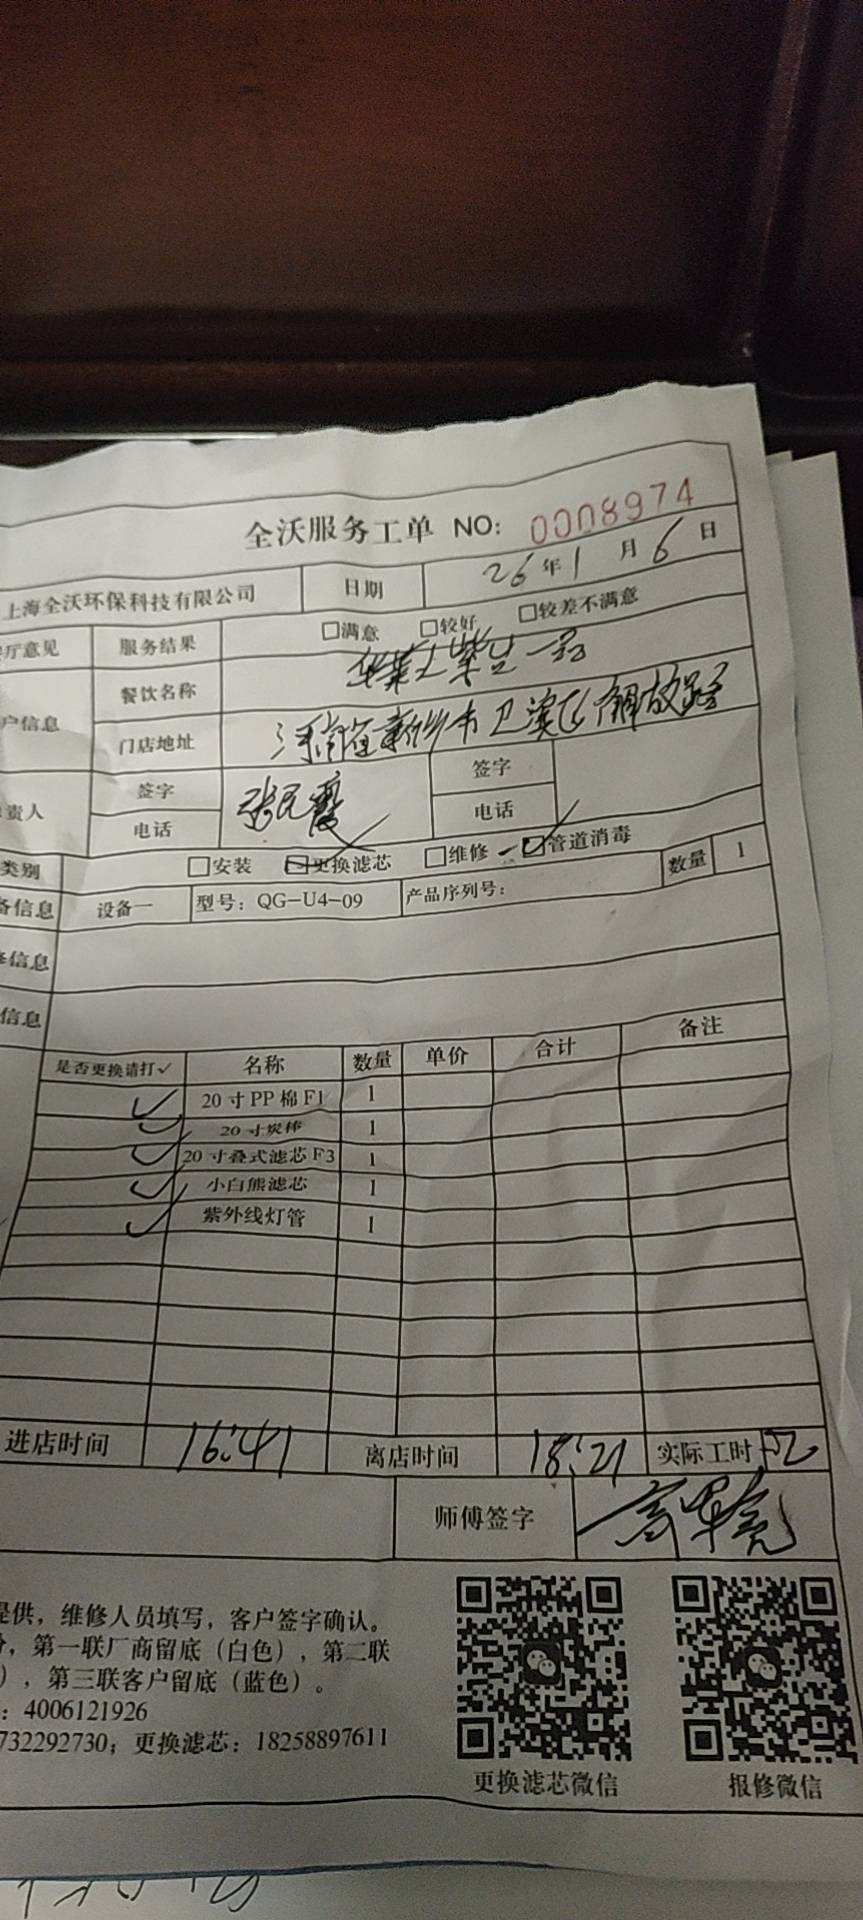 全沃服务工单 NO: 0008974
上海全沃环保科技有限公司 日期 26年1月6日
厅意见 服务结果 □满意 □较好 □较差不满意
户信息 餐饮名称
门店地址 河南省新乡市卫滨区解放路
责人 签字 张民霞 签字
电话 电话
类别 □安装 ☑更换滤芯 □维修 ☑管道消毒
备信息 设备一 型号: QG-U4-09 产品序列号: 数量 1
信息
信息
是否更换请打✓ 名称 数量 单价 合计 备注
✓ 20寸PP棉F1 1
✓ 20寸炭棒 1
✓ 20寸叠式滤芯F3 1
✓ 小白熊滤芯 1
✓ 紫外线灯管 1
进店时间 16:41 离店时间 18:21 实际工时
师傅签字
提供，维修人员填写，客户签字确认。
，第一联厂商留底（白色），第二联
），第三联客户留底（蓝色）。
: 4006121926
732292730；更换滤芯：18258897611
更换滤芯微信 报修微信